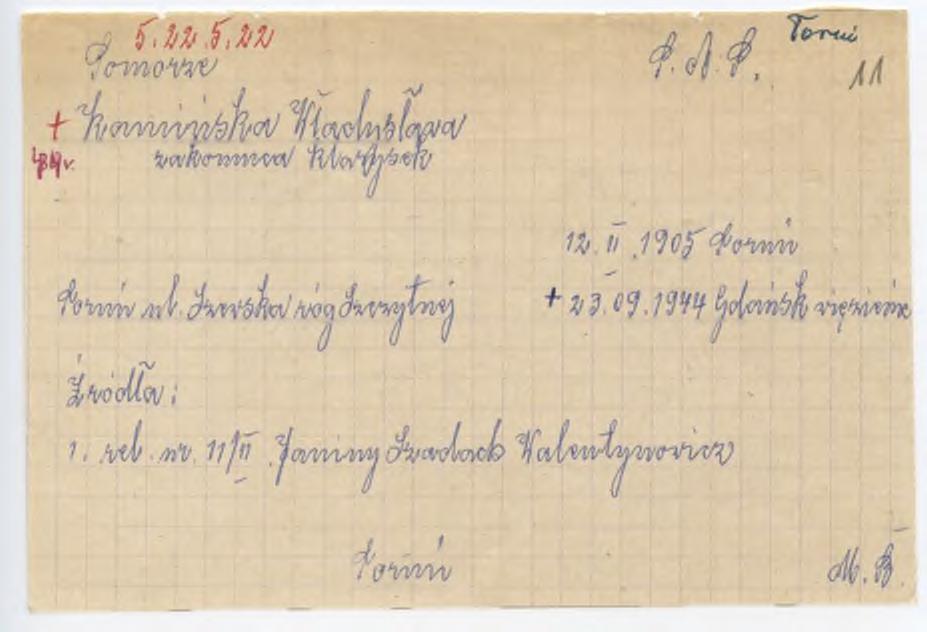 5.22.5.22
Pomorze P.A.P. Toruń
11
+ Kamińska Władysława
zakonnica Klarysek
12.II.1905 Toruń
Toruń ul. Szewska róg Szczytnej + 23.09.1944 Gdańsk więzienie
Źródła:
1. rel. nr. 11/II Janiny Szadach Walentynowicz
Toruń M.B.